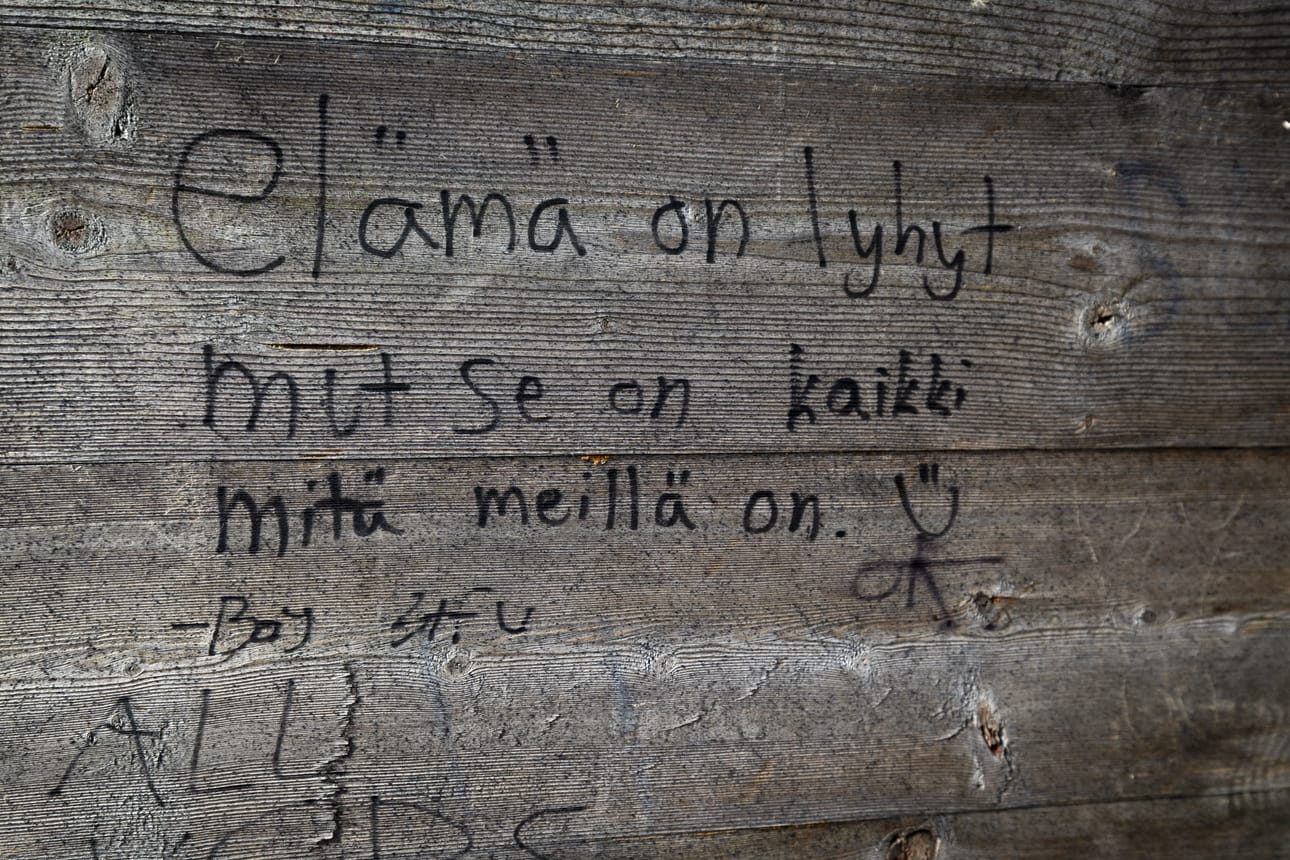 elämä on lyhyt
mut se on kaikki
mitä meillä on.
-Boy
ALL